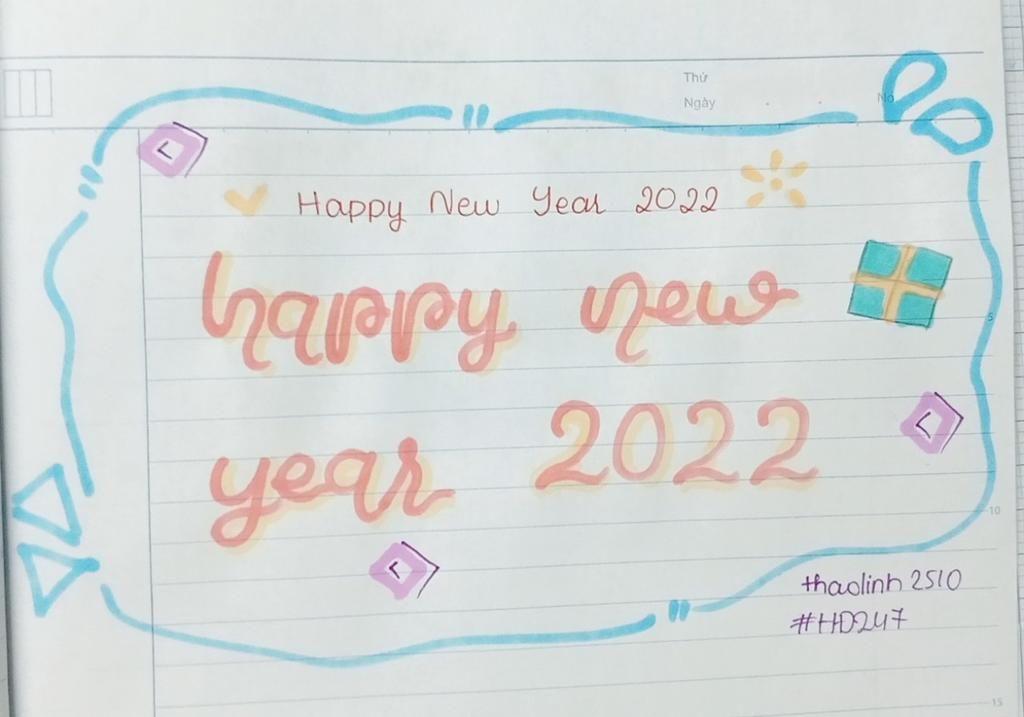 Thứ
Ngày
No
Happy New Year 2022
happy new
year 2022
5
10
thaolinh 2510
#HD247
15